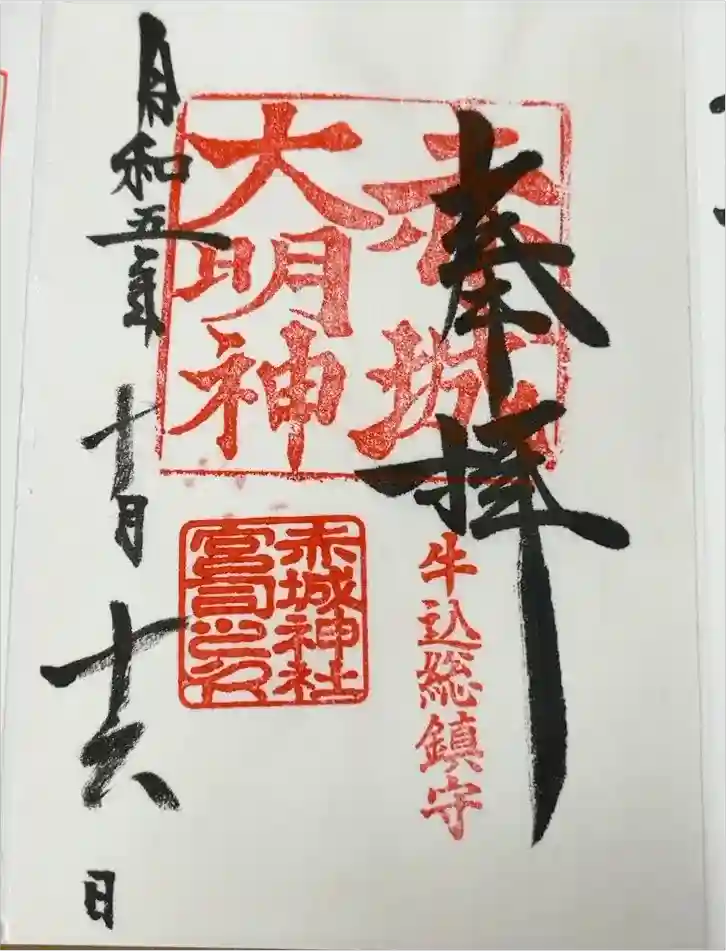 奉拝
牛込総鎮守
赤城
大明神
赤城神社
宮司之印
令和五年十月十六日